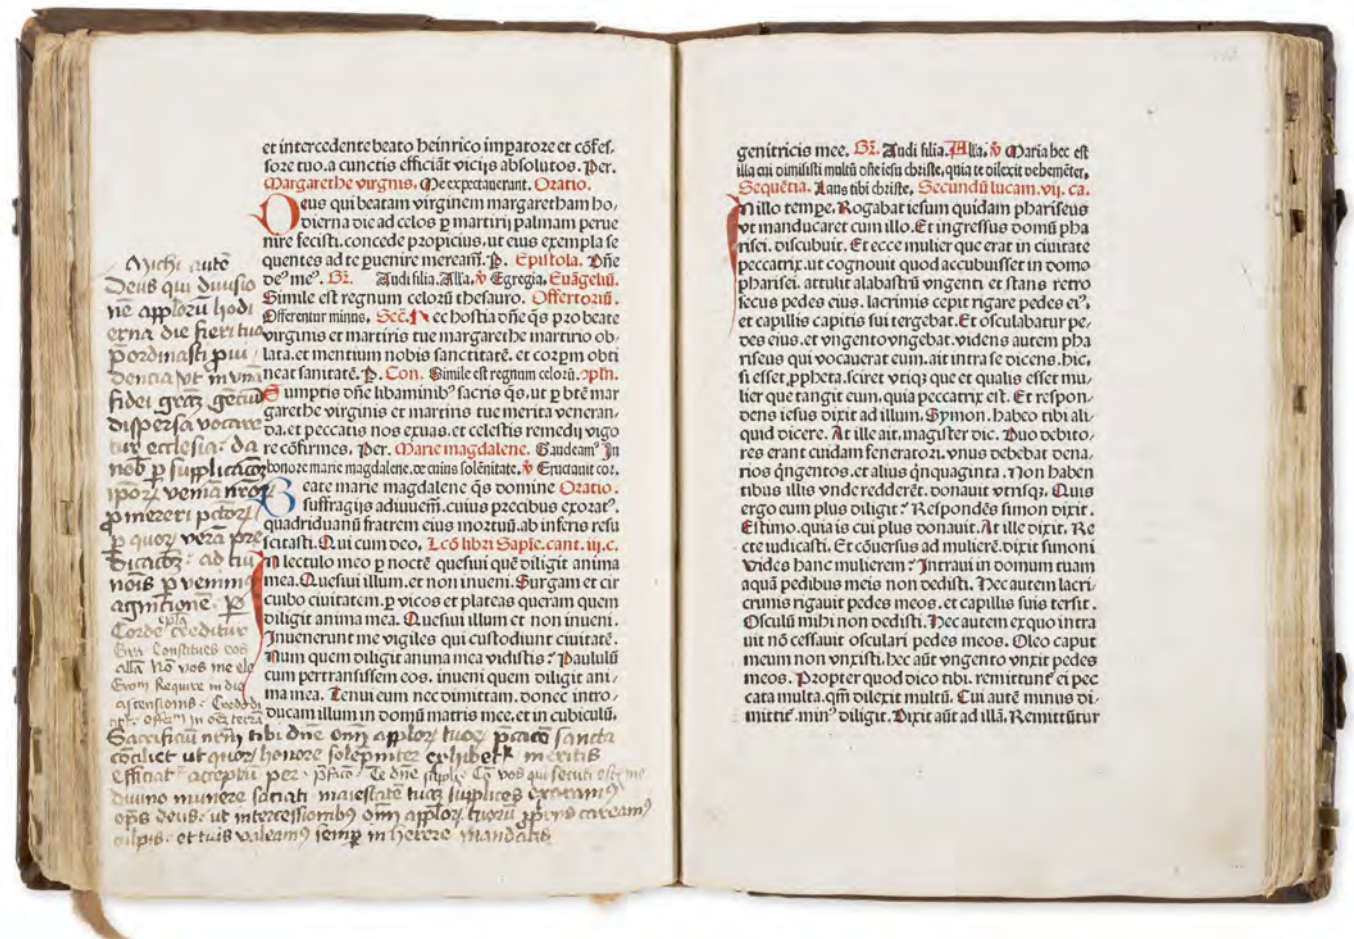 et intercedente beato heinrico imꝑatore et cõfes-
sore tuo. a cunctis efficiãt vicijs absolutos. Per.
Margarethe virginis. Me expectauerant. Oratio.
Deus qui beatam virginem margaretham ho-
dierna die ad celos ꝑ martirij palmam perue
nire fecisti. concede propicius, ut eius exempla se
quentes ad te ꝑuenire meream̃. P. Epistola. Dñe
de⁹ me⁹. Gr̃. Audi filia. Alla. v̓ Egregia. Euãgeliũ.
Simile est regnum celorũ thesauro. Offertoriũ.
Offerentur minus. Sec̃. Nec hostia dñe q̃s pro beate
virginis et martiris tue margarethe martirio ob-
lata. et mentium nobis sanctitatẽ. et corꝑm obti
neat sanitatẽ. P. Con. Simile est regnum celorũ. ꝯpln̄.
Sumptis dñe libaminib⁹ sacris q̃s. ut ꝑ btẽ mar
garethe virginis et martiris tue merita veneran-
da. et peccatis nos exuas. et celestis remedij vigo
re cõfirmes. Per. Marie magdalene. Gaudeam⁹ In
honore marie magdalene. de cuius solẽnitate. v̓ Eructauit cor.
Beate marie magdalene q̃s domine Oratio.
suffragijs adiuuem̃. cuius precibus exorat⁹.
quadriduanũ fratrem eius mortuũ. ab inferis resu
scitasti. Qui cum deo. Lcõ libri Sapie. cant. iij. c.
In lectulo meo ꝑ noctẽ quesiui quẽ diligit anima
mea. Quesiui illum. et non inueni. Surgam et cir
cuibo ciuitatem. ꝑ vicos et plateas queram quem
diligit anima mea. Quesiui illum et non inueni.
Inuenerunt me vigiles qui custodiunt ciuitatẽ.
Num quem diligit anima mea vidistis? Paululũ
cum pertransissem eos. inueni quem diligit ani-
ma mea. Tenui eum nec dimittam. donec intro-
ducam illum in domũ matris mee. et in cubiculũ.
Michi autẽ
Deus qui diuisio
nẽ applorũ hodi
erna die fieri tua
p̄ordinasti ꝓui
dencia vt in vna
fidei graꝫ genciũ
dispersa vocare
tur ecclesia: da
nob̄ ꝑ supplicacoꝫ
ip̄oꝝ veniã nr̃oꝝ
ꝓmereri pctõꝝ
ꝑ quoꝝ verã pre
dicacõꝫ ad tui
nõis ꝑ venim⁹
agnicionẽ. P̄
epl̄a
Corde creditur
Gra Constitues eos
alla Nõ vos me ele
Ewm Require in die
ascensionis: Credo di
Offm In oẽꝫ terrã
Sacrificiũ nr̃m tibi dñe oñi applorꝫ tuorꝫ p̃cacõ sancta
cõciliet ut quorꝫ honore solepniter exhibetr̃ meritis
efficiat acceptũ per. p̃facõ. Te dñe suppl̃i. Cõ vos qui secuti estis me
diuino munere saciati maiestatẽ tuaꝫ supplices exoram⁹
op̄s deus: ut intercessionibꝫ oñi applorꝫ tuorũ ꝓpriis caream⁹
culpis: et tuis valeam⁹ semꝑ in herere mandatis
genitricis mee. Gr̃. Audi filia. Alla. v̓ Maria hec est
illa cui dimisisti multũ dñe iesu christe, quia te dilexit vehemẽter.
Sequẽtia. Laus tibi christe. Secundũ lucam. vij. ca.
In illo temꝑe. Rogabat iesum quidam phariseus
vt manducaret cum illo. Et ingressus domũ pha
risei. discubuit. Et ecce mulier que erat in ciuitate
peccatrix. ut cognouit quod accubuisset in domo
pharisei. attulit alabastrũ vngenti et stans retro
secus pedes eius. lacrimis cepit rigare pedes ei⁹.
et capillis capitis sui tergebat. Et osculabatur pe-
des eius. et vngento vngebat. videns autem pha
riseus qui vocauerat eum. ait intra se dicens. hic.
si esset ꝓpheta. sciret vtiqꝫ que et qualis esset mu-
lier que tangit eum. quia peccatrix est. Et respon-
dens iesus dixit ad illum. Symon. habeo tibi ali-
quid dicere. At ille ait. magister dic. Duo debito-
res erant cuidam feneratori. vnus debebat dena-
rios q̃ngentos. et alius q̃nquaginta. Non haben
tibus illis vnde redderẽt. donauit vtrisqꝫ. Quis
ergo eum plus diligit? Respondẽs simon dixit.
Estimo. quia is cui plus donauit. At ille dixit. Re
cte iudicasti. Et cõuersus ad mulierẽ. dixit simoni
Vides hanc mulierem? Intraui in domum tuam
aquã pedibus meis non dedisti. Hec autem lacri-
crimis rigauit pedes meos. et capillis suis tersit.
Osculũ mihi non dedisti. Hec autem ex quo intra
uit nõ cessauit osculari pedes meos. Oleo caput
meum non vnxisti. hec aũt vngento vnxit pedes
meos. Propter quod dico tibi. remittunt̃ ei pec
cata multa. qm̃ dilexit multũ. Cui autẽ minus di-
mittit̃. min⁹ diligit. Dixit aũt ad illã. Remittũtur